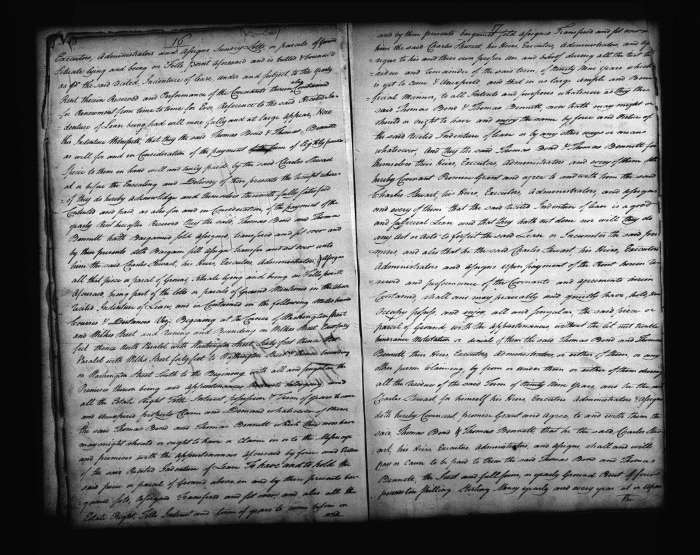 16
Executors, Administrators and Assigns Sundry Lotts or parcels of Ground
Situate lying and being on Fells point aforesaid as is butted & bounded
as  the said recited Indenture of Lease, under and subject to the yearly
Rent therein Reserved and Performance of the Covenants therein also Contained
for Renewment from time to time for Ever Reference to the said Recited In-
denture of Lease being had will more fully and at large appear, Now
this Indenture Witnesseth that they the said Thomas Bond & Thomas Bennett
as well for and in Consideration of the payment  sum of Eighty pounds
Specie to them in hand well and truly paid by the said Charles Stewart
at or before the Ensealing and Delivery of these presents the receipt where
of they do hereby acknowledge and themselves therewith fully satisfied
Contented and paid as also for and in Consideration of the payment of the
yearly Rent hereafter Reserved They the said Thomas Bond and Thomas
Bennett hath Bargained Sold Assigned transfered and set over and
by these presents doth Bargain sell Assign Transfer and set over unto
him the said Charles Stewart his Heirs Executors Administrators & Assigns
all that piece or parcel of Ground Situate lying and being on Fells point
aforesaid, being part of the Lotts or parcels of Ground Mentioned in the above
recited Indenture of Lease, and is Contained in the following metes bounds
Courses & Distances Viz. Begining at the Corner of Washington Street
and Wilkes Street and runing and bounding on Wilkes Street Easterly
feet thence North Paralel with Washington Street Sixty feet thence West
Paralel with Wilkes Street forty feet to Washington Street thence bounding
on Washington Street South to the Begining with all and singular the
Premises thereon being and appurtenances thereunto belonging and
all the Estate Right Title Interest possession & Term of years to come
and unexpired property Claim and Demand whatsoever of them
the said Thomas Bond and Thomas Bennett which they now have
may might should or ought to have or claim in or to the  
and premises with the appurtenances aforesaid by force and Virtue
of the said Recited Indenture of Lease To have and to hold the
said piece or parcel of Ground above in and by these presents bar-
gained sold Assigned Transfered and set over, and also all the
Estate Right, Title Interest and term of years to come before in
and
17
and by these presents bargained sold Assigned Transfered and set over
him the said Charles Stewart, his Heirs, Executors, Administrators, and As-
signs to his and their own proper use and behoof during all the rest re-
sidue and remainder of the said term of Ninety Nine years which
is yet to come & Unexpired and that in as large ample and Bene
ficial Manner, to all Intents and purposes whatsoever as they the
said Thomas Bond & Thomas Bennett, now hath may might or
should or ought to have and enjoy the same by force and Virtue of
the said recited Indenture of Lease or by any other ways or means
whatsoever, and they the said Thomas Bond & Thomas Bennett for
themselves their Heirs, Executors, Administrators and every of them do
hereby Covenant Promise Grant and agree to and with him the said
Charles Stewart, his Heirs, Executors, Administrators, and Assigns
and every of them, that the said recited Indenture of Lease is a good
and sufficient Lease and that they hath not done nor will they do
any Act or Acts to forfeit the said Lease or Incumber the said pre
mises and also that he the said Charles Stewart, his Heirs, Executors
Administrators and Assigns upon payment of the Rent herein re
served and performance of the Covenants and agreements herein
Contained, shall and may peaceably and quietly have, hold, use
Occupy possess and enjoy all and singular the said piece or
parcel of Ground with the appurtenances without the let suit trouble
hindrance Molestation or denial of them the said Thomas Bond and Thomas
Bennett, their Heirs, Executors, Administrators, or either of them or any
other person claiming by from or under them or either of them during
all the residue of the said Term of Ninety Nine years, and he the said
Charles Stewart for himself his Heirs Executors Administrators & Assigns
doth hereby Covenant, promise Grant and agree, to and with them the
said Thomas Bond & Thomas Bennett that he the said Charles Ste-
wart, his Heirs, Executors, Administrators, and Assigns, shall and will
pay or Cause to be paid to them the said Thomas Bond and Thomas
Bennett, the Just and full sum, or yearly Ground Rent of four
pounds ten Shilling Sterling Money yearly and every year at or upon
the